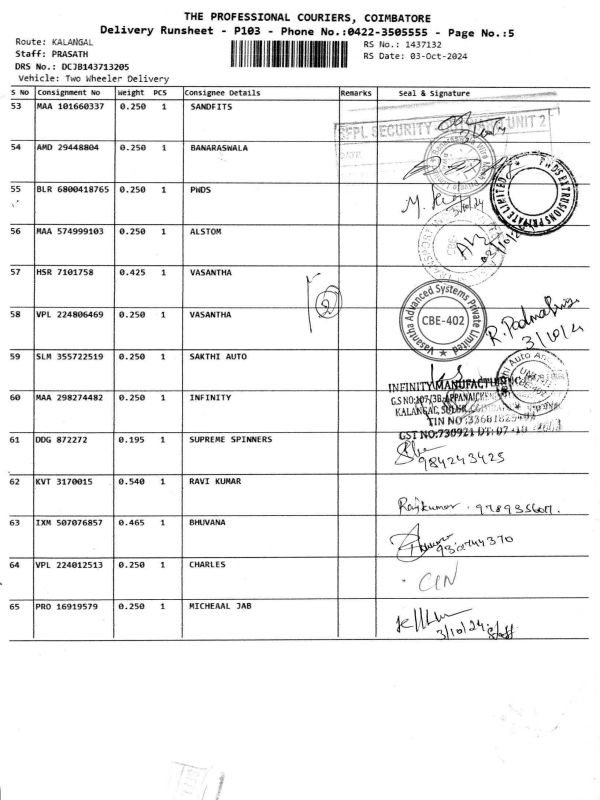 THE PROFESSIONAL COURIERS, COIMBATORE
Delivery Runsheet - P103 - Phone No.:0422-3505555 - Page No.:5
Route: KALANGAL
Staff: PRASATH
DRS No.: DCJB143713205
Vehicle: Two Wheeler Delivery
RS No.: 1437132
RS Date: 03-Oct-2024
S No Consignment No Weight PCS Consignee Details Remarks Seal & Signature
53 MAA 101660337 0.250 1 SANDFITS
SECURITY UNIT 2
54 AMD 29448804 0.250 1 BANARASWALA
55 BLR 6800418765 0.250 1 PWDS
3/10/24
EXTRUSIONS PRIVATE LIMITED
56 MAA 574999103 0.250 1 ALSTOM
57 HSR 7101758 0.425 1 VASANTHA
2
Vasantha Advanced Systems Private Limited
CBE-402
58 VPL 224806469 0.250 1 VASANTHA
3/10/24
59 SLM 355722519 0.250 1 SAKTHI AUTO
60 MAA 298274482 0.250 1 INFINITY
INFINITY MANUFACTURING
KALANGAL, SULUR
61 DDG 872272 0.195 1 SUPREME SPINNERS
984243425
62 KVT 3170015 0.540 1 RAVI KUMAR
Rajkumar
63 IXM 507076857 0.465 1 BHUVANA
64 VPL 224012513 0.250 1 CHARLES
65 PRO 16919579 0.250 1 MICHEAAL JAB
3/10/24
Staff